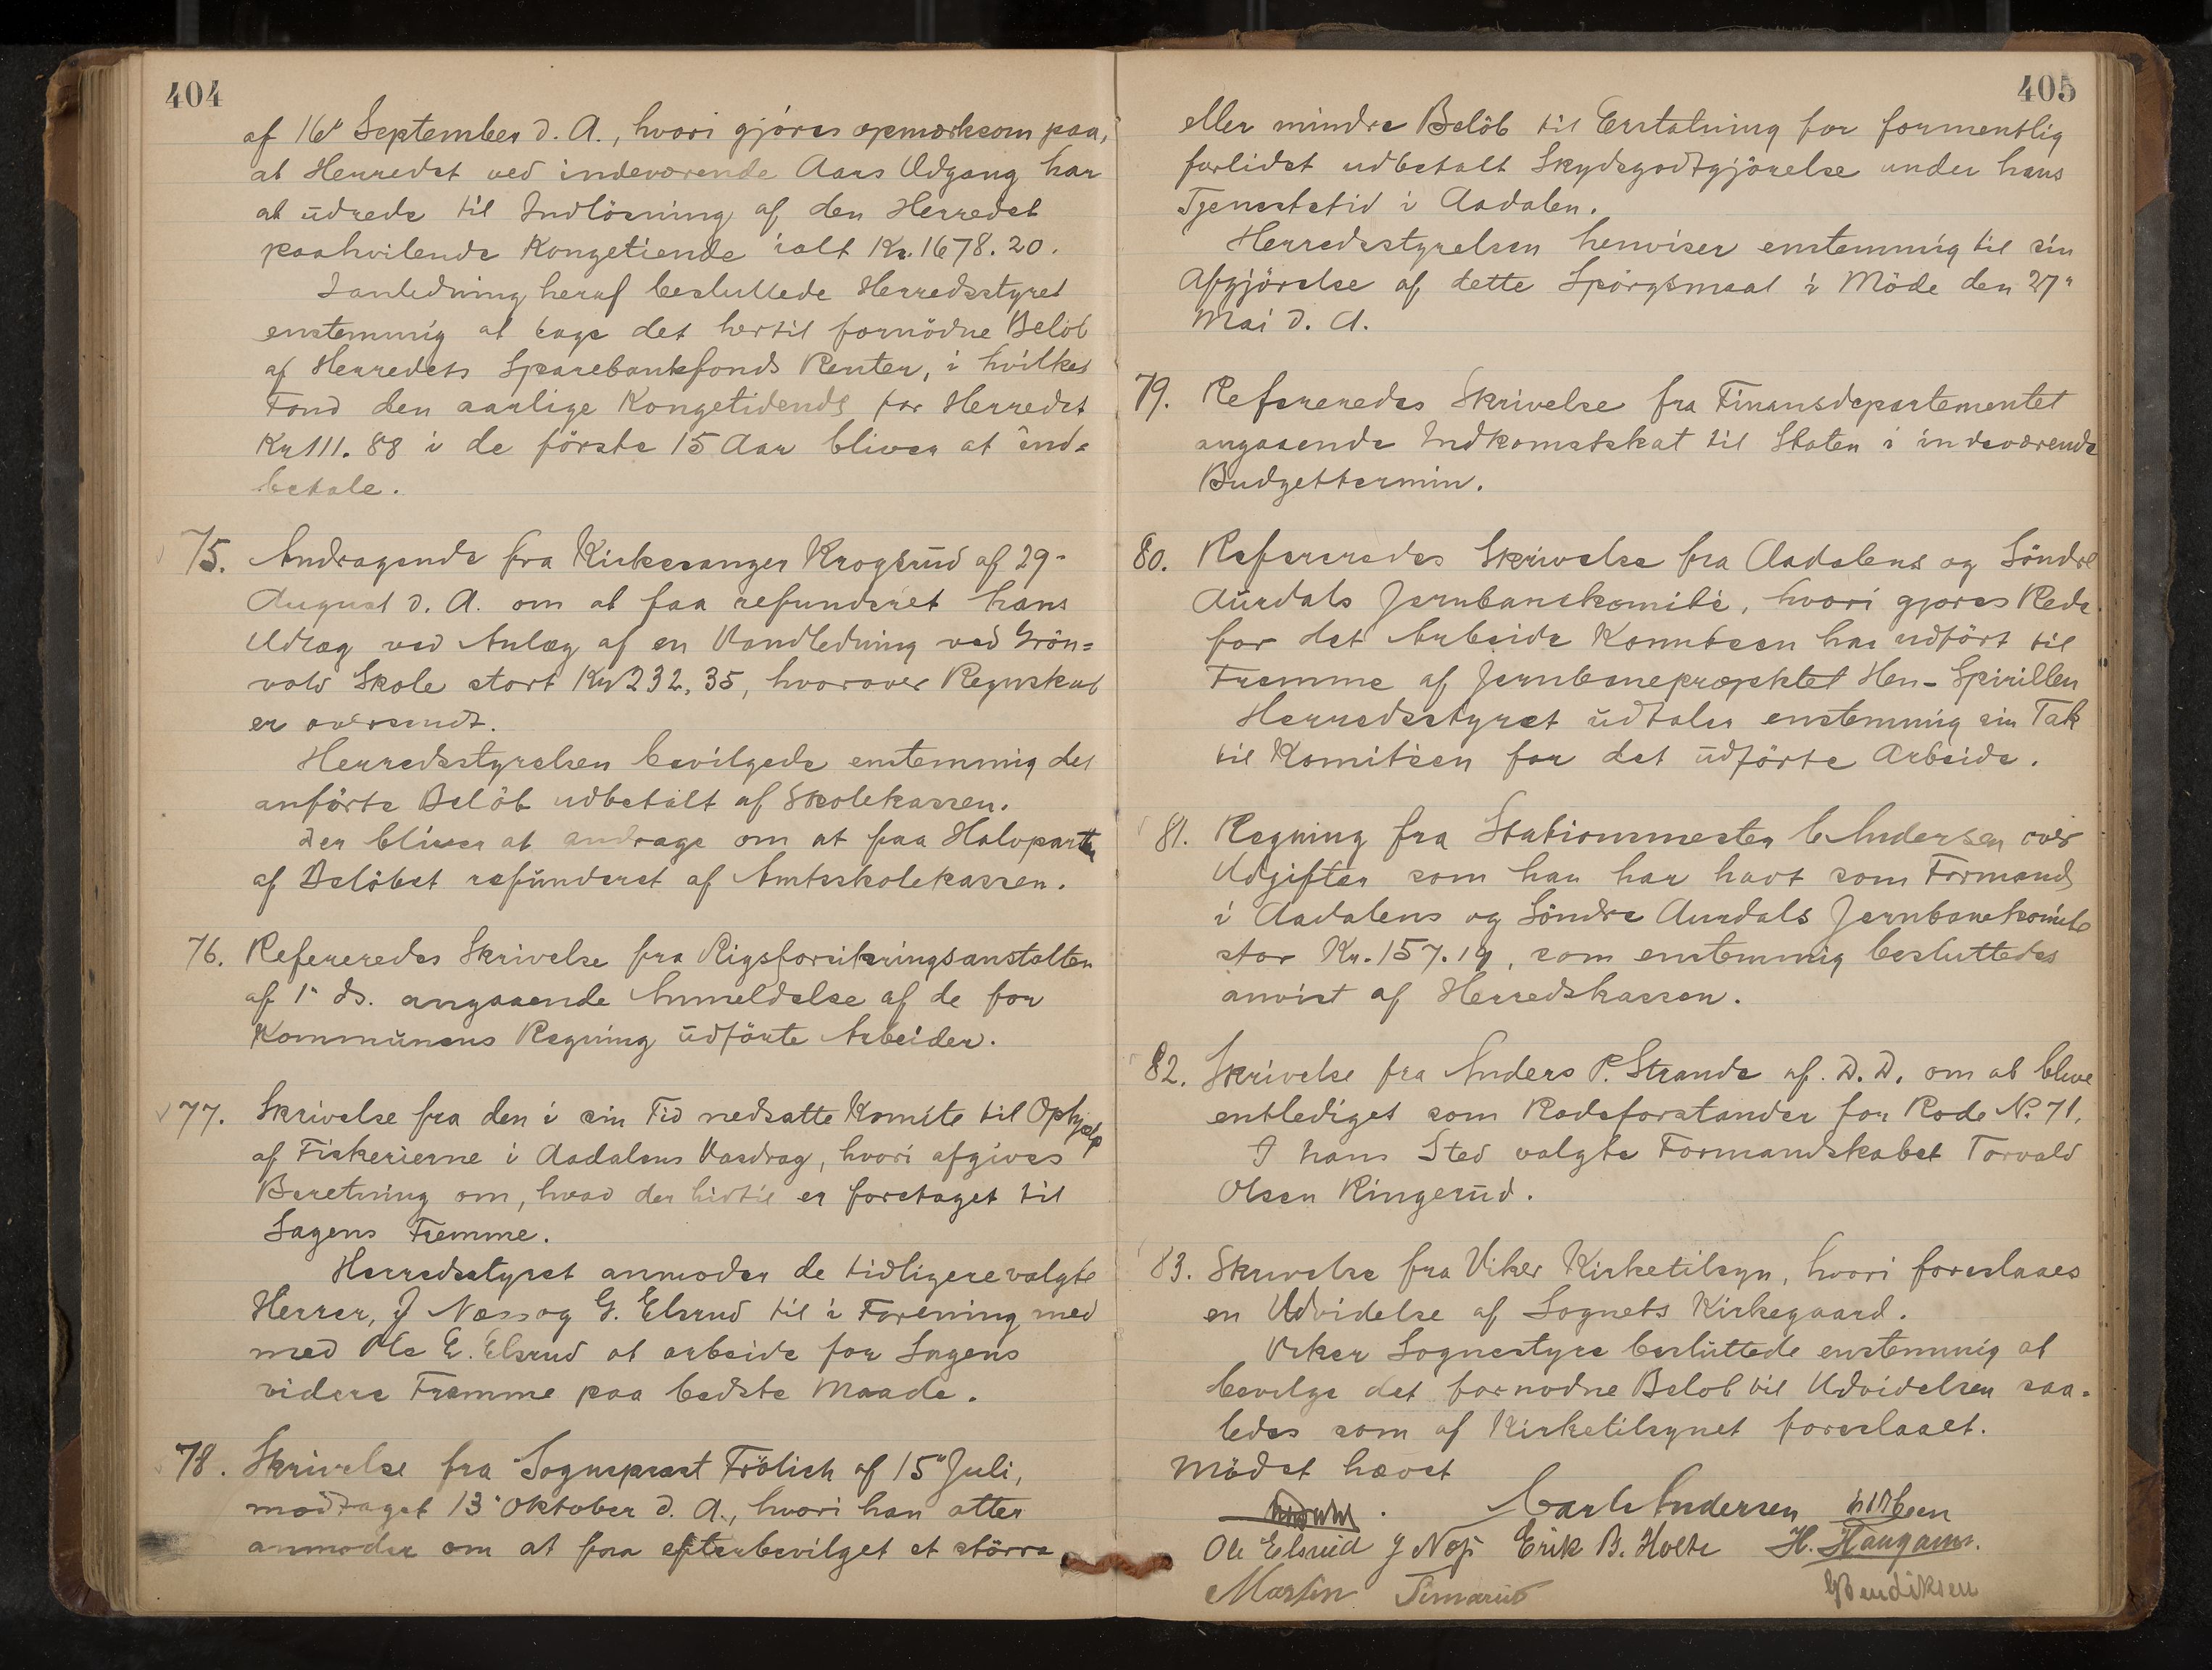 404
af 16' September d. A., hvori gjöres opmærksom paa,
at Herredet ved indeværende Aars Udgang har
at udrede til Indlösning af den Herredet
paahvilende Kongetiende ialt Kr. 1678. 20.
I anledning heraf besluttede Herredsstyret
enstemmig at tage det hertil fornödne Belöb
af Herredets Sparebankfonds Renter, i hvilket
Fond den aarlige Kongetidende for Herredet
Kr 111. 88 i de förste 15 Aar bliver at ind=
betale.
75. Andragende fra Kirkesanger Krogsrud af 29-
August d. A. om at faa refunderet hans
Udlæg ved Anlæg af en Vandledning ved Grön=
vold Skole stort Kr 232, 35, hvorover Regnskab
er oversendt.
Herredsstyrelsen bevilgede enstemmig det
anförte Belöb udbetalt af Skolekassen.
Der bliver at andrage om at faa Halvparten
af Belöbet refunderet af Amtsskolekassen.
76. Refereredes Skrivelse fra Rigsforsikringsanstalten
af 1" ds. angaaende Anmeldelse af de for
Kommunens Regning udförte Arbeider.
77. Skrivelse fra den i sin Tid nedsatte Komite til Ophjælp
af Fiskerierne i Aadalens Vasdrag, hvori afgives
Beretning om, hvad der hidtil er foretaget til
Sagens Fremme.
Herredsstyret anmoder de tidligere valgte
Herrer, J Næss og G. Elsrud til i Forening med
med Ole E. Elsrud at arbeide for Sagens
videre Fremme paa bedste Maade.
78. Skrivelse fra Sogneprest Frölich af 15" Juli,
modtaget 13" Oktober d. A., hvori han atter
anmoder om at faa efterbevilget et större
405
eller mindre Belöb til Erstatning for formentlig
forlidet udbetalt Skydsgodtgjörelse under hans
Tjenestetid i Aadalen.
Herredsstyrelsen henviser enstemmig til sin
Afgjörelse af dette Spörgsmaal i Möde den 27"
Mai d. A.
79. Refereredes Skrivelse fra Finansdepartementet
angaaende Indkomstskat til Staten i indeværende
Budgettermin.
80. Refereredes Skrivelse fra Aadalens og Söndre
Aurdals Jernbanekomite, hvori gjøres Rede
for det Arbeide Komiteen har udfört til
Fremme af Jernbaneprojektet Hen - Spirillen
Herredsstyret udtaler enstemmig sin Tak
til Komiteen for det udförte Arbeide.
81. Regning fra Stationsmester C Andersen over
Udgifter som han har havt som Formand
i Aadalens og Söndre Aurdals Jernbanekomite
stor Kr. 157.19, som enstemmig besluttedes
anvist af Herredskassen.
82. Skrivelse fra Anders P. Strande af. D. D. om at blive
entlediget som Rodeforstander for Rode No. 71.
I hans Sted valgte Formandskabet Torvald
Olsen Ringerud.
83. Skrivelse fra Viker Kirketilsyn, hvori foreslaaes
en Udvidelse af Sognets Kirkegaard.
Viker Sognestyre besluttede enstemmig at
bevilge det fornødne Beløb til Udvidelsen saa=
ledes som af Kirketilsynet foreslaaet.
Mödet hævet
Carl Andersen
Ole Elsrud J Næss Erik B. Holte H. Haugam.
Martin Simarud Bendiksen